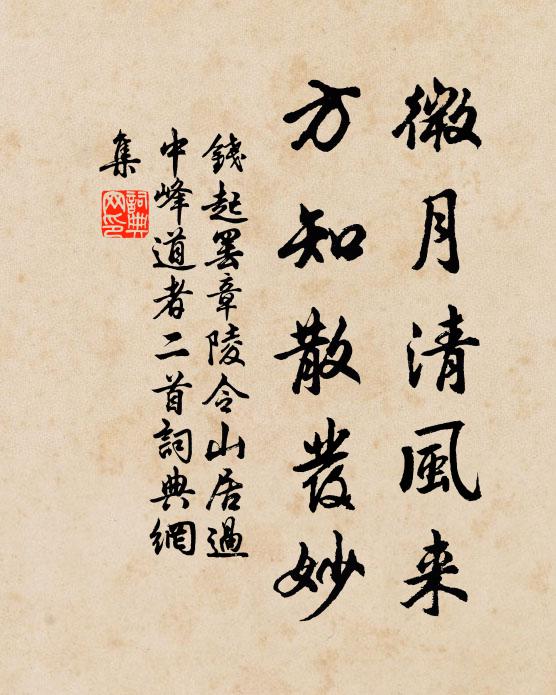 微月清風来
方知散发妙
錢起罢章陵令山居過
中峰道者二首詞典網
集
詞典
网印